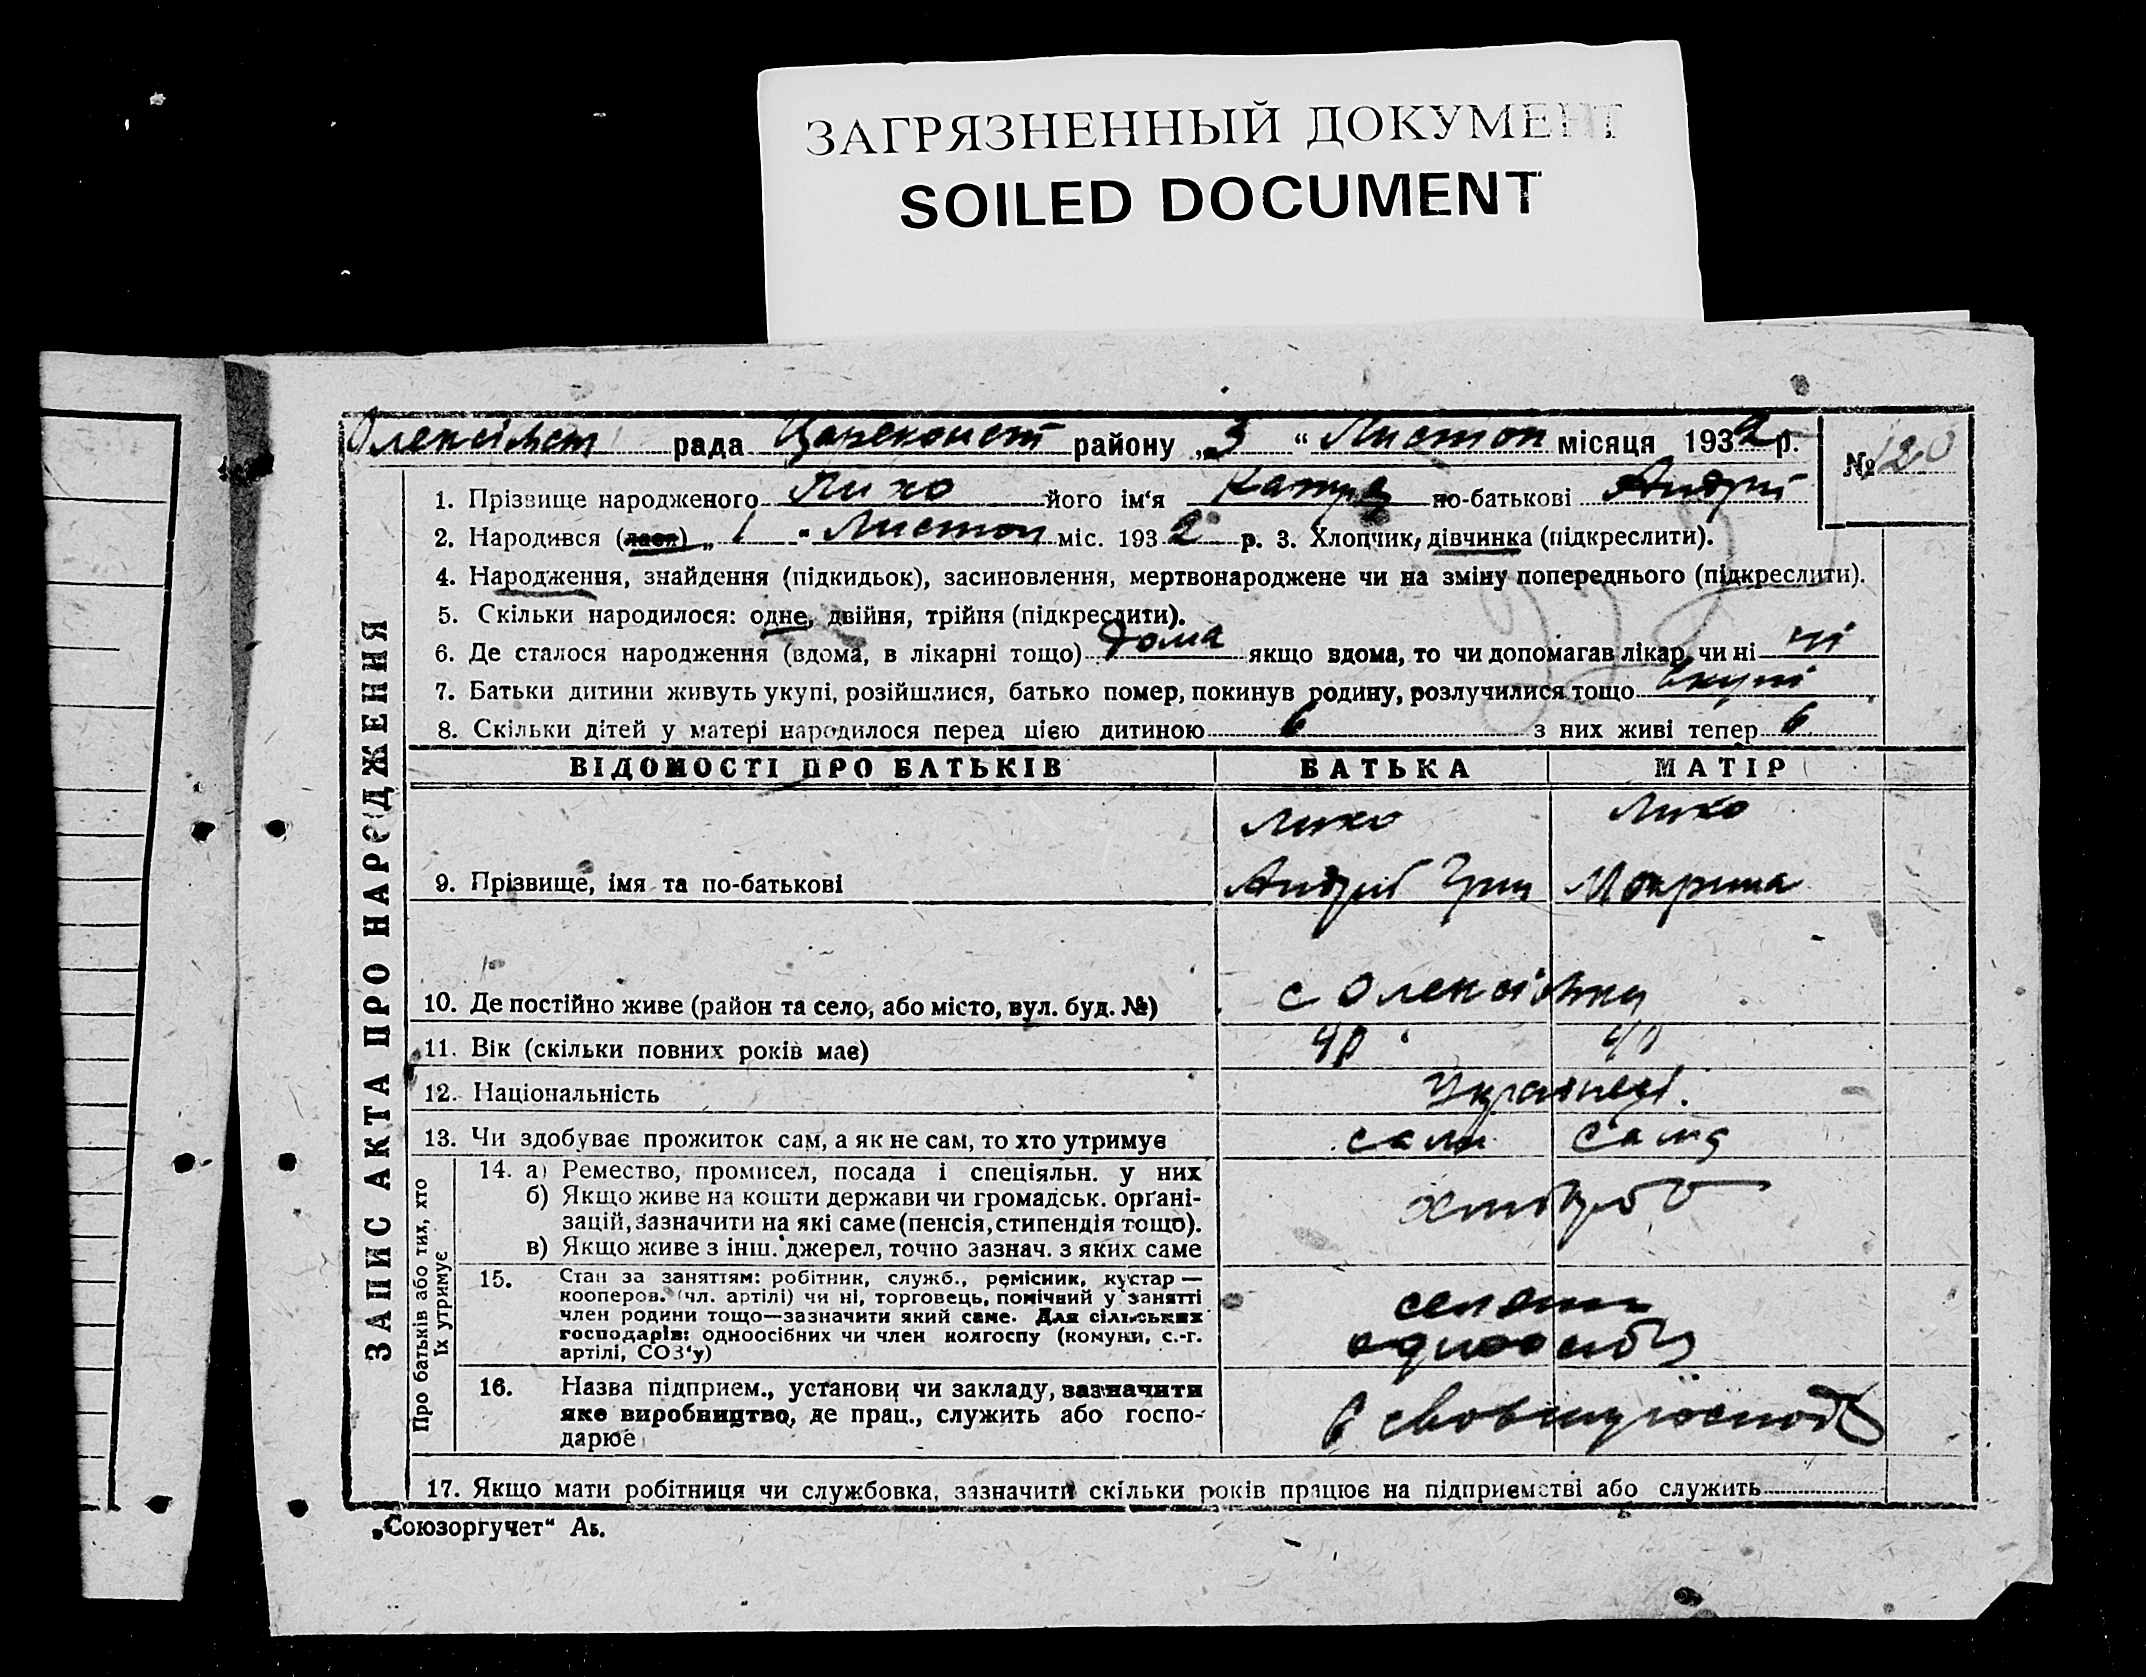 ЗАГРЯЗНЕННЫЙ ДОКУМЕНТ
SOILED DOCUMENT
рада району „3“ Листоп місяця 1932 р.
№ 120
1. Прізвище народженого Лихо його ім‘я по-батькові Андрії
2. Народився (лася) „1“ Листоп міс. 1932 р. 3. Хлопчик, дівчинка (підкреслити).
4. Народження, знайдення (підкидьок), засиновлення, мертвонароджене чи на зміну попереднього (підкреслити).
5. Скільки народилося: одне, двійня, трійня (підкреслити).
6. Де сталося народження (вдома, в лікарні тощо) Дома якщо вдома, то чи допомагав лікар, чи ні ні
7. Батьки дитини живуть укупі, розійшлися, батько помер, покинув родину, розлучилися тощо вкупі
8. Скільки дітей у матері народилося перед цією дитиною 6 з них живі тепер 6
ЗАПИС АКТА ПРО НАРОДЖЕННЯ
ВІДОМОСТІ ПРО БАТЬКІВ БАТЬКА МАТІР
Лихо Лихо
9. Прізвище, імя та по-батькові Андрій Гриц Мокрина
10. Де постійно живе (район та село, або місто, вул. буд. №) с Олексіівки
11. Вік (скільки повних років має) 40 40
12. Національність Українці.
13. Чи здобуває прожиток сам, а як не сам, то хто утримує сам сама
Про батьків або тих, хто їх утримує
14. а) Ремество, промисел, посада і спеціяльн. у них
б) Якщо живе на кошти держави чи громадськ. орґані-
зацій, зазначити на які саме (пенсія, стипендія тощо).
в) Якщо живе з інш. джерел, точно зазнач. з яких саме
хлібороб
15. Стан за заняттям: робітник, служб., ремісник, кустар —
кооперов. (чл. артілі) чи ні, торговець, помічний у занятті
член родини тощо—зазначити який саме. Для сільських
господарів: одноосібних чи член колгоспу (комуни, с.-г.
артілі, СОЗ‘у)
селяни
одноосібн
16. Назва підприєм., установи чи закладу, зазначити
яке виробництво, де прац., служить або госпо-
дарює
в своєму господ
17. Якщо мати робітниця чи службовка, зазначити скільки років працює на підприємстві або служить
„Союзоргучет“ Аь.